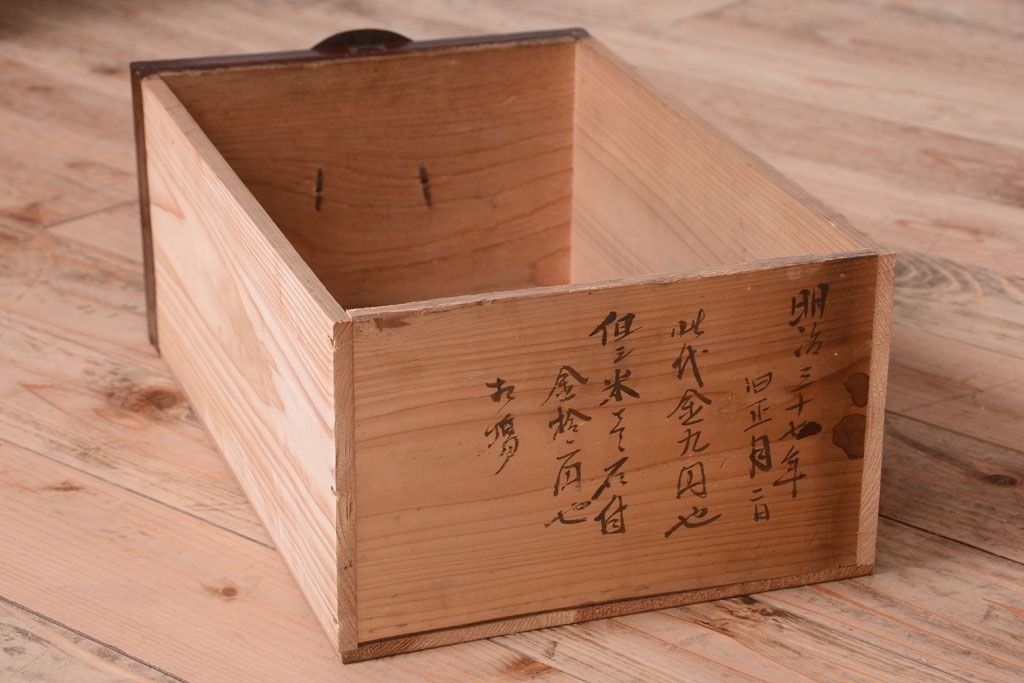 明治三十七年
旧正月二日
此代金九円也
但シ米壱石付
金拾二円也
相場